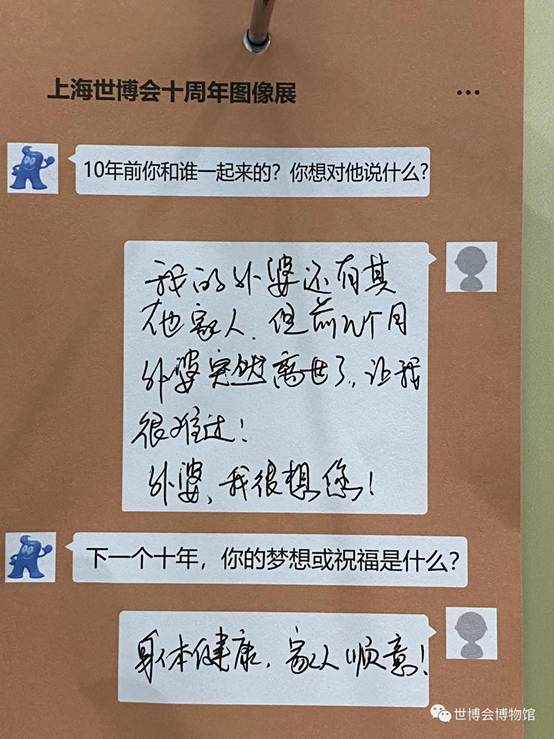 上海世博会十周年图像展
...
10年前你和谁一起来的？你想对他说什么？
我的外婆还有其
他家人，但前几个月
外婆突然离世了，让我
很难过！
外婆、我很想您！
下一个十年，你的梦想或祝福是什么？
身体健康，家人顺意！
世博会博物馆